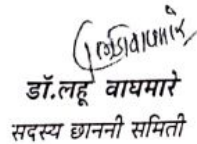 डॉ.लहू वाघमारे
सदस्य छाननी समिती